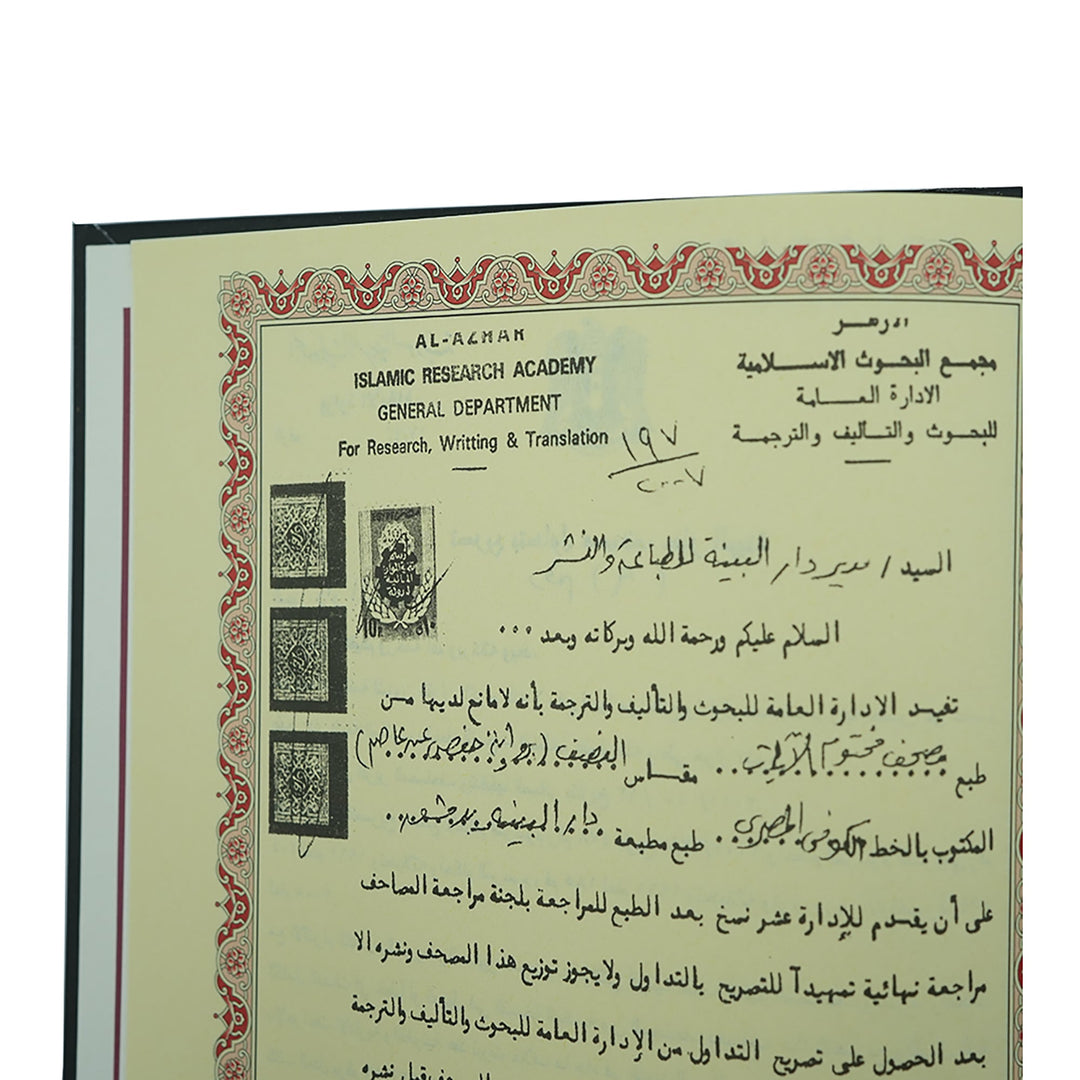 AL-AZHAR
ISLAMIC RESEARCH ACADEMY
GENERAL DEPARTMENT
For Research, Writting & Translation
الازهر
مجمع البحوث الاسلامية
الادارة العامة
للبحوث والتأليف والترجمة
١٩٧
٢٠٠٧
السيد / مدير دار البينة للطباعة والنشر
السلام عليكم ورحمة الله وبركاته وبعد ...
تفيد الادارة العامة للبحوث والتأليف والترجمة بأنه لامانع لديها من
طبع مصحف مختوم الآيات .. مقاس النصيف (برواية حفص عن عاصم)
المكتوب بالخط الكوفى المصرى . طبع مطبعة دار
على أن يقدم للإدارة عشر نسخ بعد الطبع للمراجعة بلجنة مراجعة المصاحف
مراجعة نهائية تمهيدآ للتصريح بالتداول ولايجوز توزيع هذا المصحف ونشره الا
بعد الحصول على تصريح التداول من الإدارة العامة للبحوث والتأليف والترجمة
قبل نشره